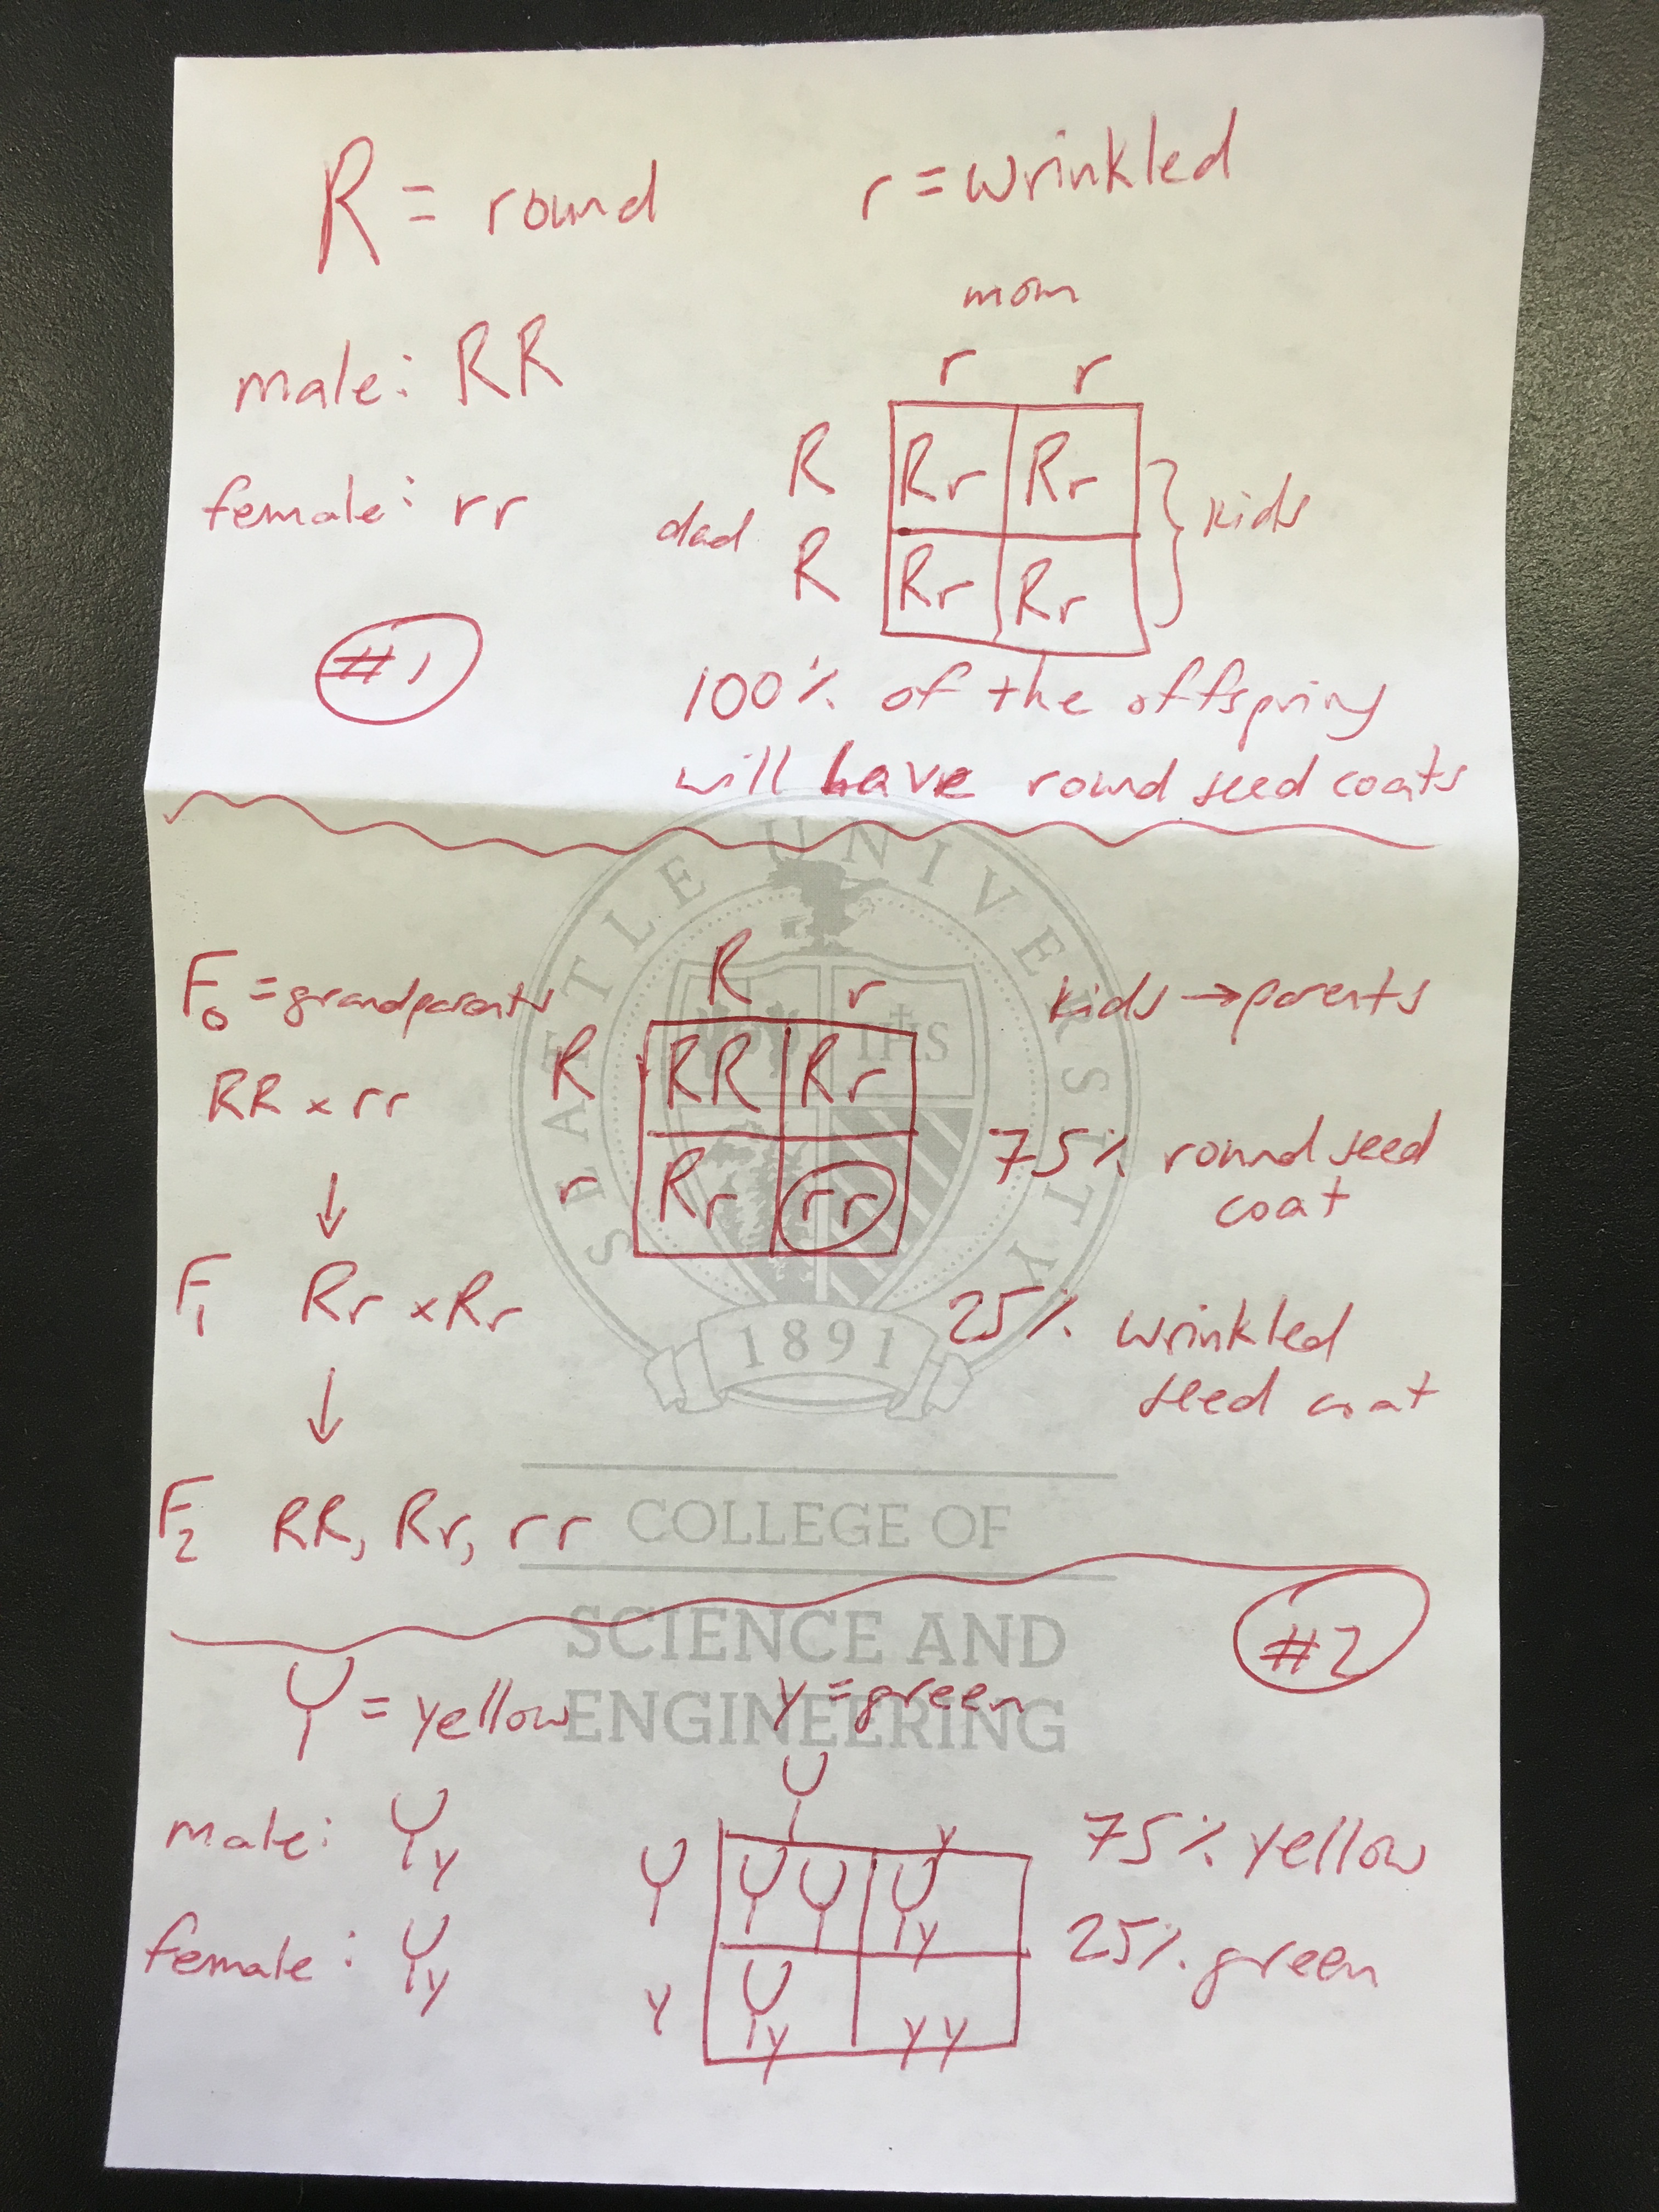 R = round r = wrinkled
mom
male: RR
r r
R Rr Rr
female: rr dad } kids
R Rr Rr
#1
100% of the offspring
will have round seed coats
SEATTLE UNIVERSITY
IHS
1891
F0 = grandparents
RR x rr
↓
F1 Rr x Rr
↓
F2 RR, Rr, rr
R r
R RR Rr
r Rr rr
kids → parents
75% round seed
coat
25% wrinkled
seed coat
COLLEGE OF
SCIENCE AND
ENGINEERING
#2
Y = yellow y = green
male: Yy
female: Yy
Y y
Y YY Yy
y Yy yy
75% yellow
25% green